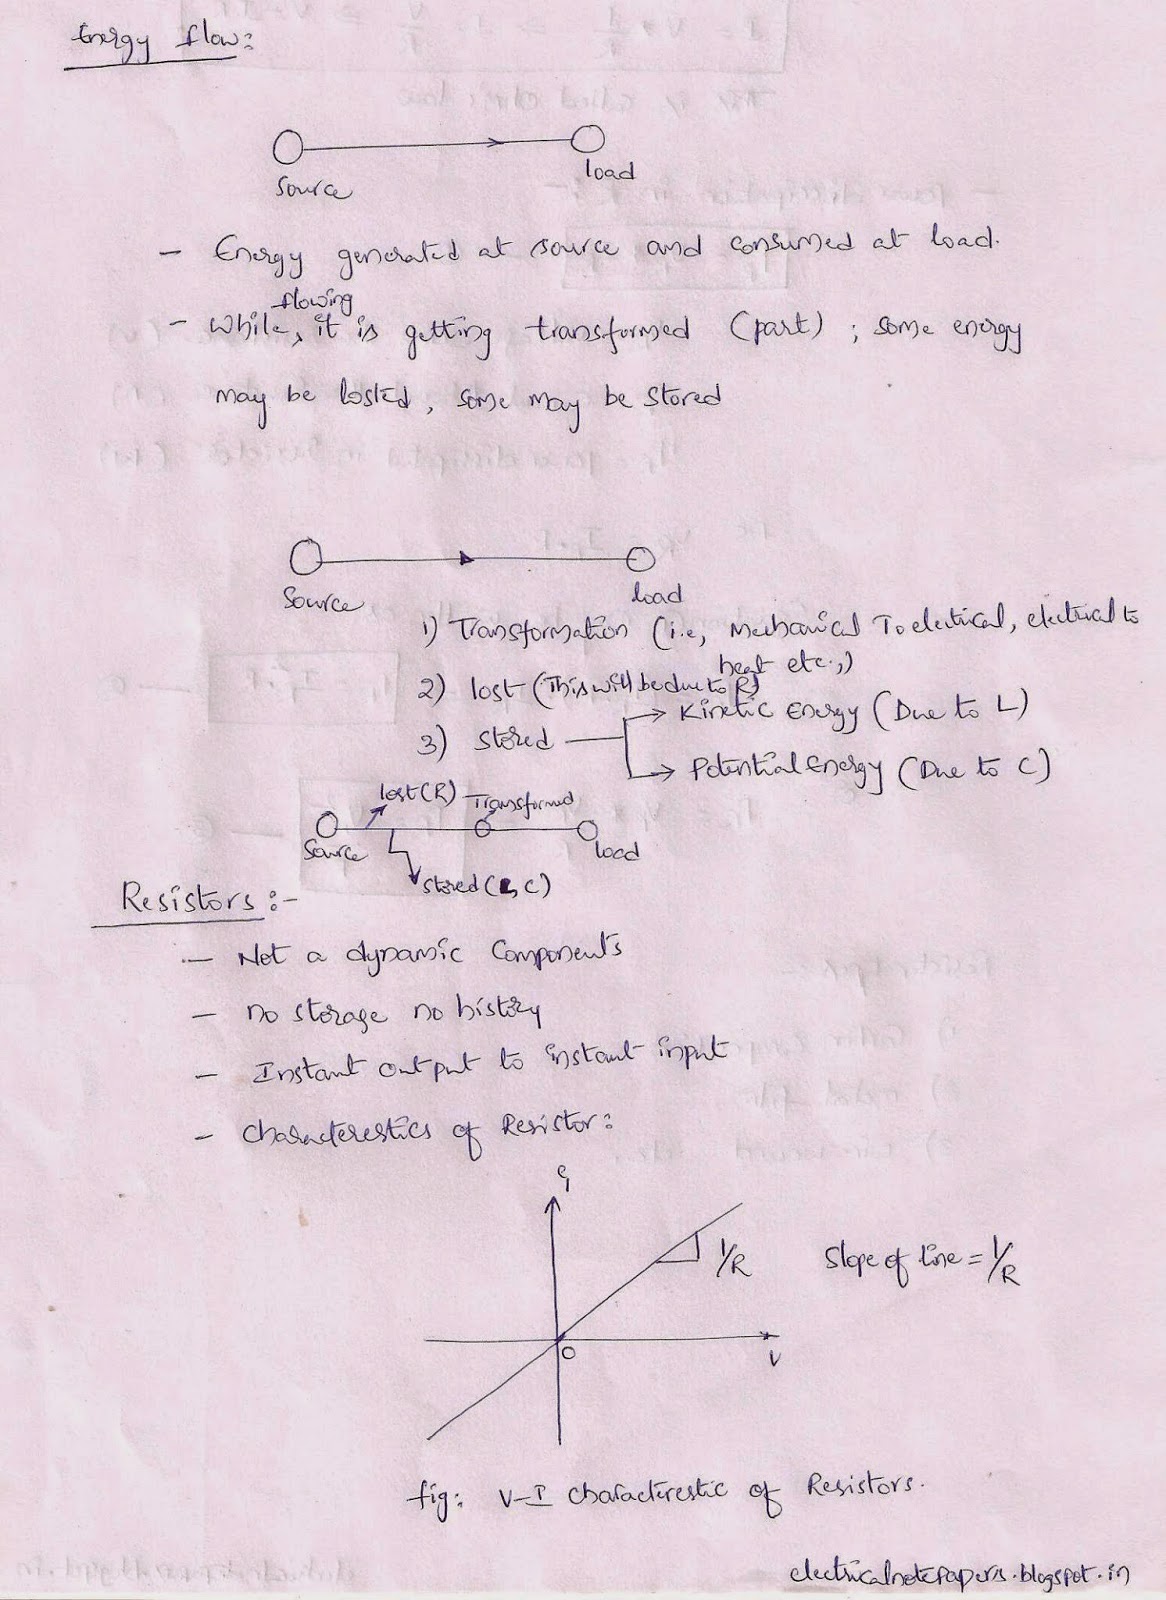 Energy flow:
Source
load
- Energy generated at source and consumed at load.
flowing
- While, it is getting transformed (part) ; some energy
may be losted, some may be stored
Source
load
1) Transformation (i.e, Mechanical To electrical, electrical to
heat etc.,)
2) lost (This will be due to R)
3) Stored
Kinetic Energy (Due to L)
Potential Energy (Due to C)
lost(R)
Transformed
Source
load
Stored (L, C)
Resistors:-
- Not a dynamic Components
- no storage no history
- Instant output to instant input
- Characterestics of Resistor:
i
1/R
Slope of line = 1/R
O
V
fig: V-I Characterestic of Resistors.
electricalnotepapers.blogspot.in